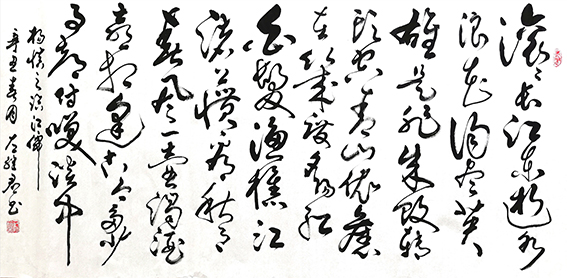 滚滚长江东逝水
浪花淘尽英
雄是非成败转
头空青山依旧
在几度夕阳红
白发渔樵江
渚上惯看秋月
春风一壶浊酒
喜相逢古今多少
事都付笑谈中
杨慎之临江仙
辛丑春月